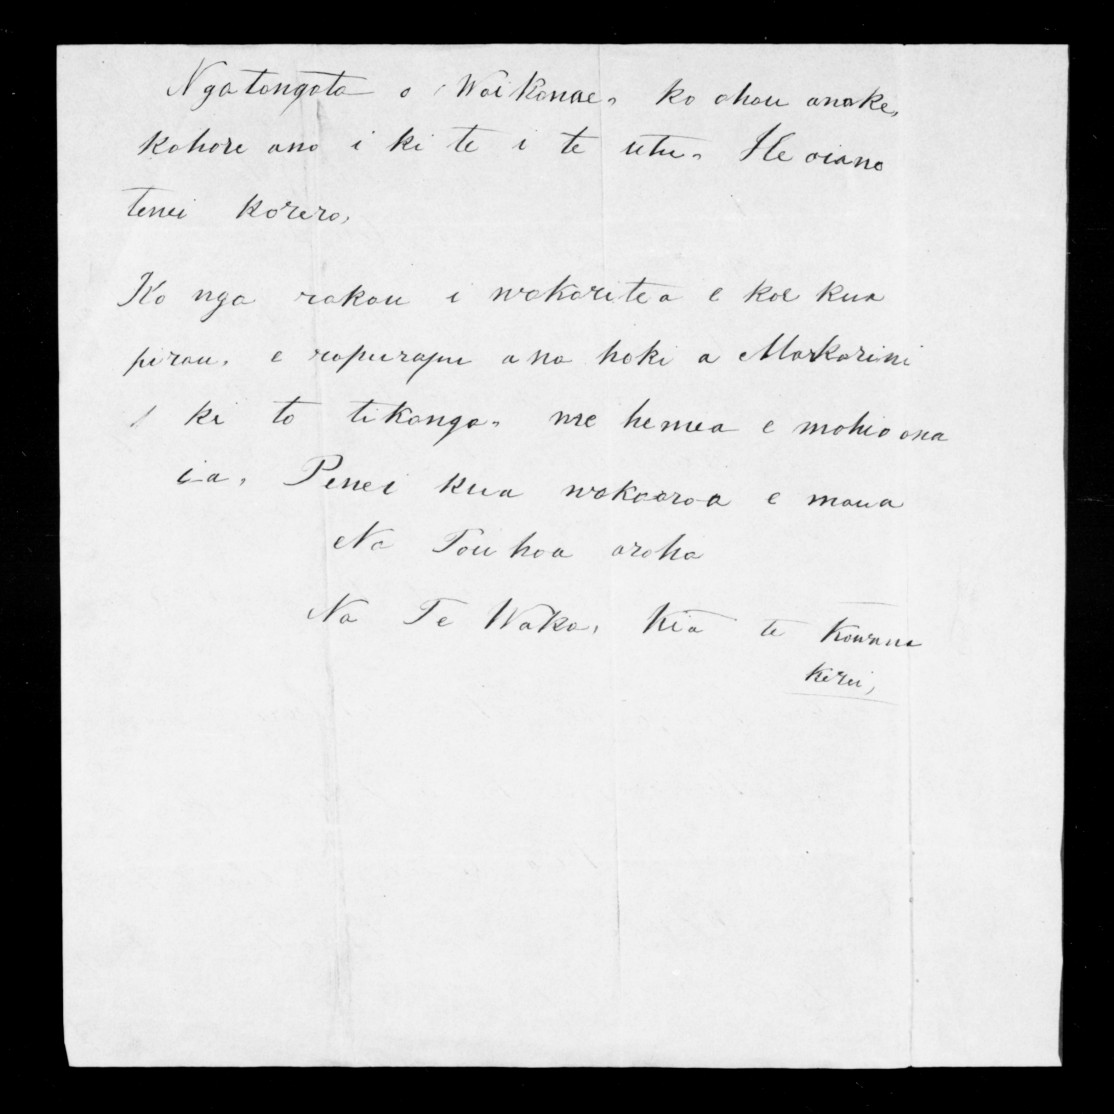 Ngatangata o Waikanae, ko ahau anake,
kahore ano i ki te i te utu. He oiano
tenei korero,
Ko nga rakau i wakaritea e koe kua
pirau. e rapurapu ana hoki a Makarini
ki to tikanga. me hemea e mohio ana
ia. Penei kua wakaaroa e maua
Na Tou hoa aroha
Na Te Waka, Kia te Kawana
Kerei,